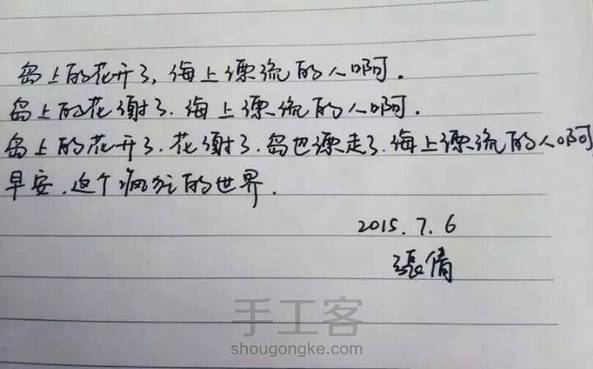 岛上的花开了,海上漂流的人啊.
岛上的花谢了.海上漂流的人啊.
岛上的花开了.花谢了.岛也漂走了.海上漂流的人啊
早安.这个疯狂的世界.
2015.7.6
張倩
手工客
shougongke.com